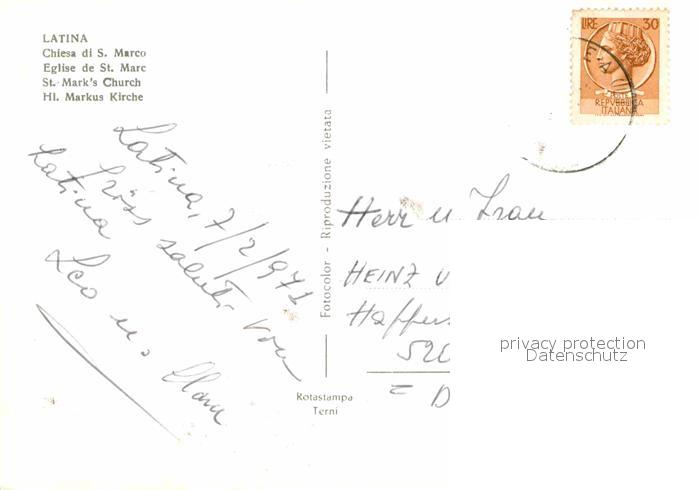 LATINA
Chiesa di S. Marco
Eglise de St. Marc
St. Mark's Church
Hl. Markus Kirche
Latina, 7/2/1971
saluti von
Latina
Leo u.
Fotocolor - Riproduzione vietata
Rotastampa
Terni
LIRE 30
POSTE
REPVBBLICA
ITALIANA
Herr u Frau
HEINZ
520
= D
privacy protection
Datenschutz